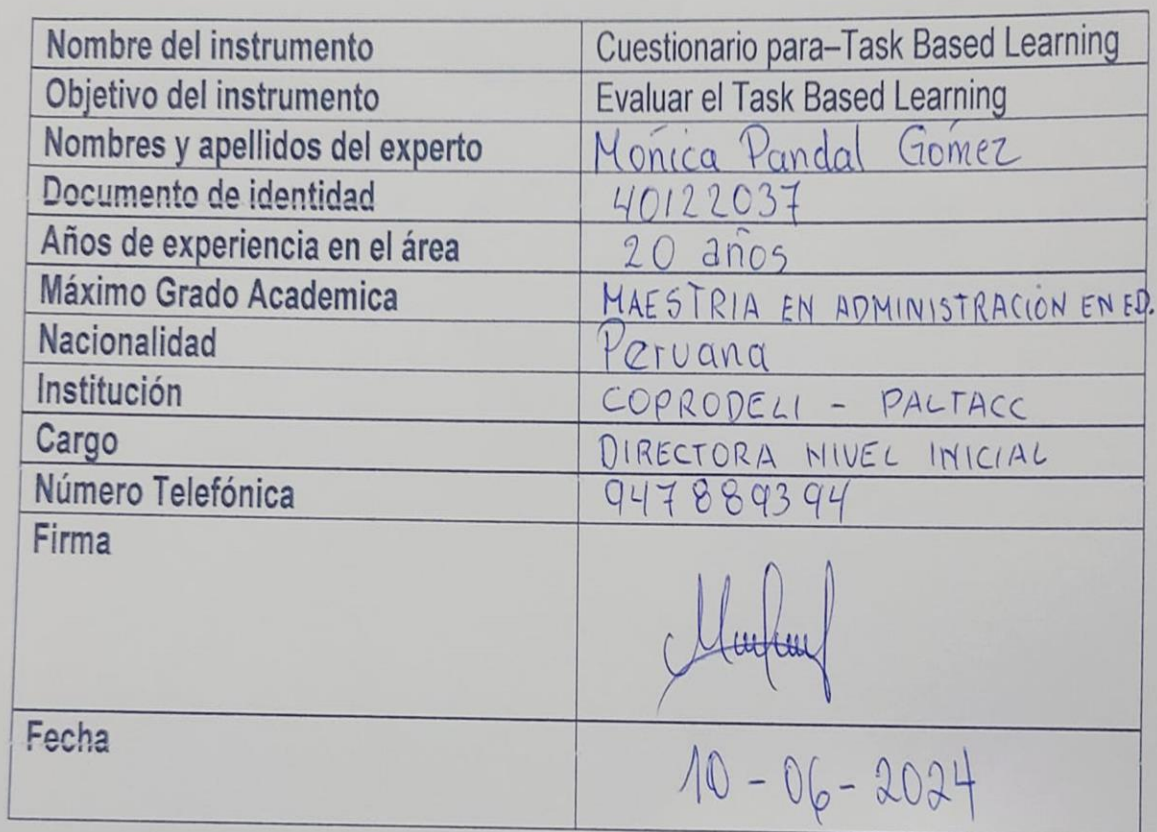 Nombre del instrumento Cuestionario para–Task Based Learning
Objetivo del instrumento Evaluar el Task Based Learning
Nombres y apellidos del experto Mónica Pandal Gómez
Documento de identidad 40122037
Años de experiencia en el área 20 años
Máximo Grado Academica MAESTRIA EN ADMINISTRACIÓN EN ED.
Nacionalidad Peruana
Institución COPRODELI - PALTACC
Cargo DIRECTORA NIVEL INICIAL
Número Telefónica 947889394
Firma
Fecha 10-06-2024